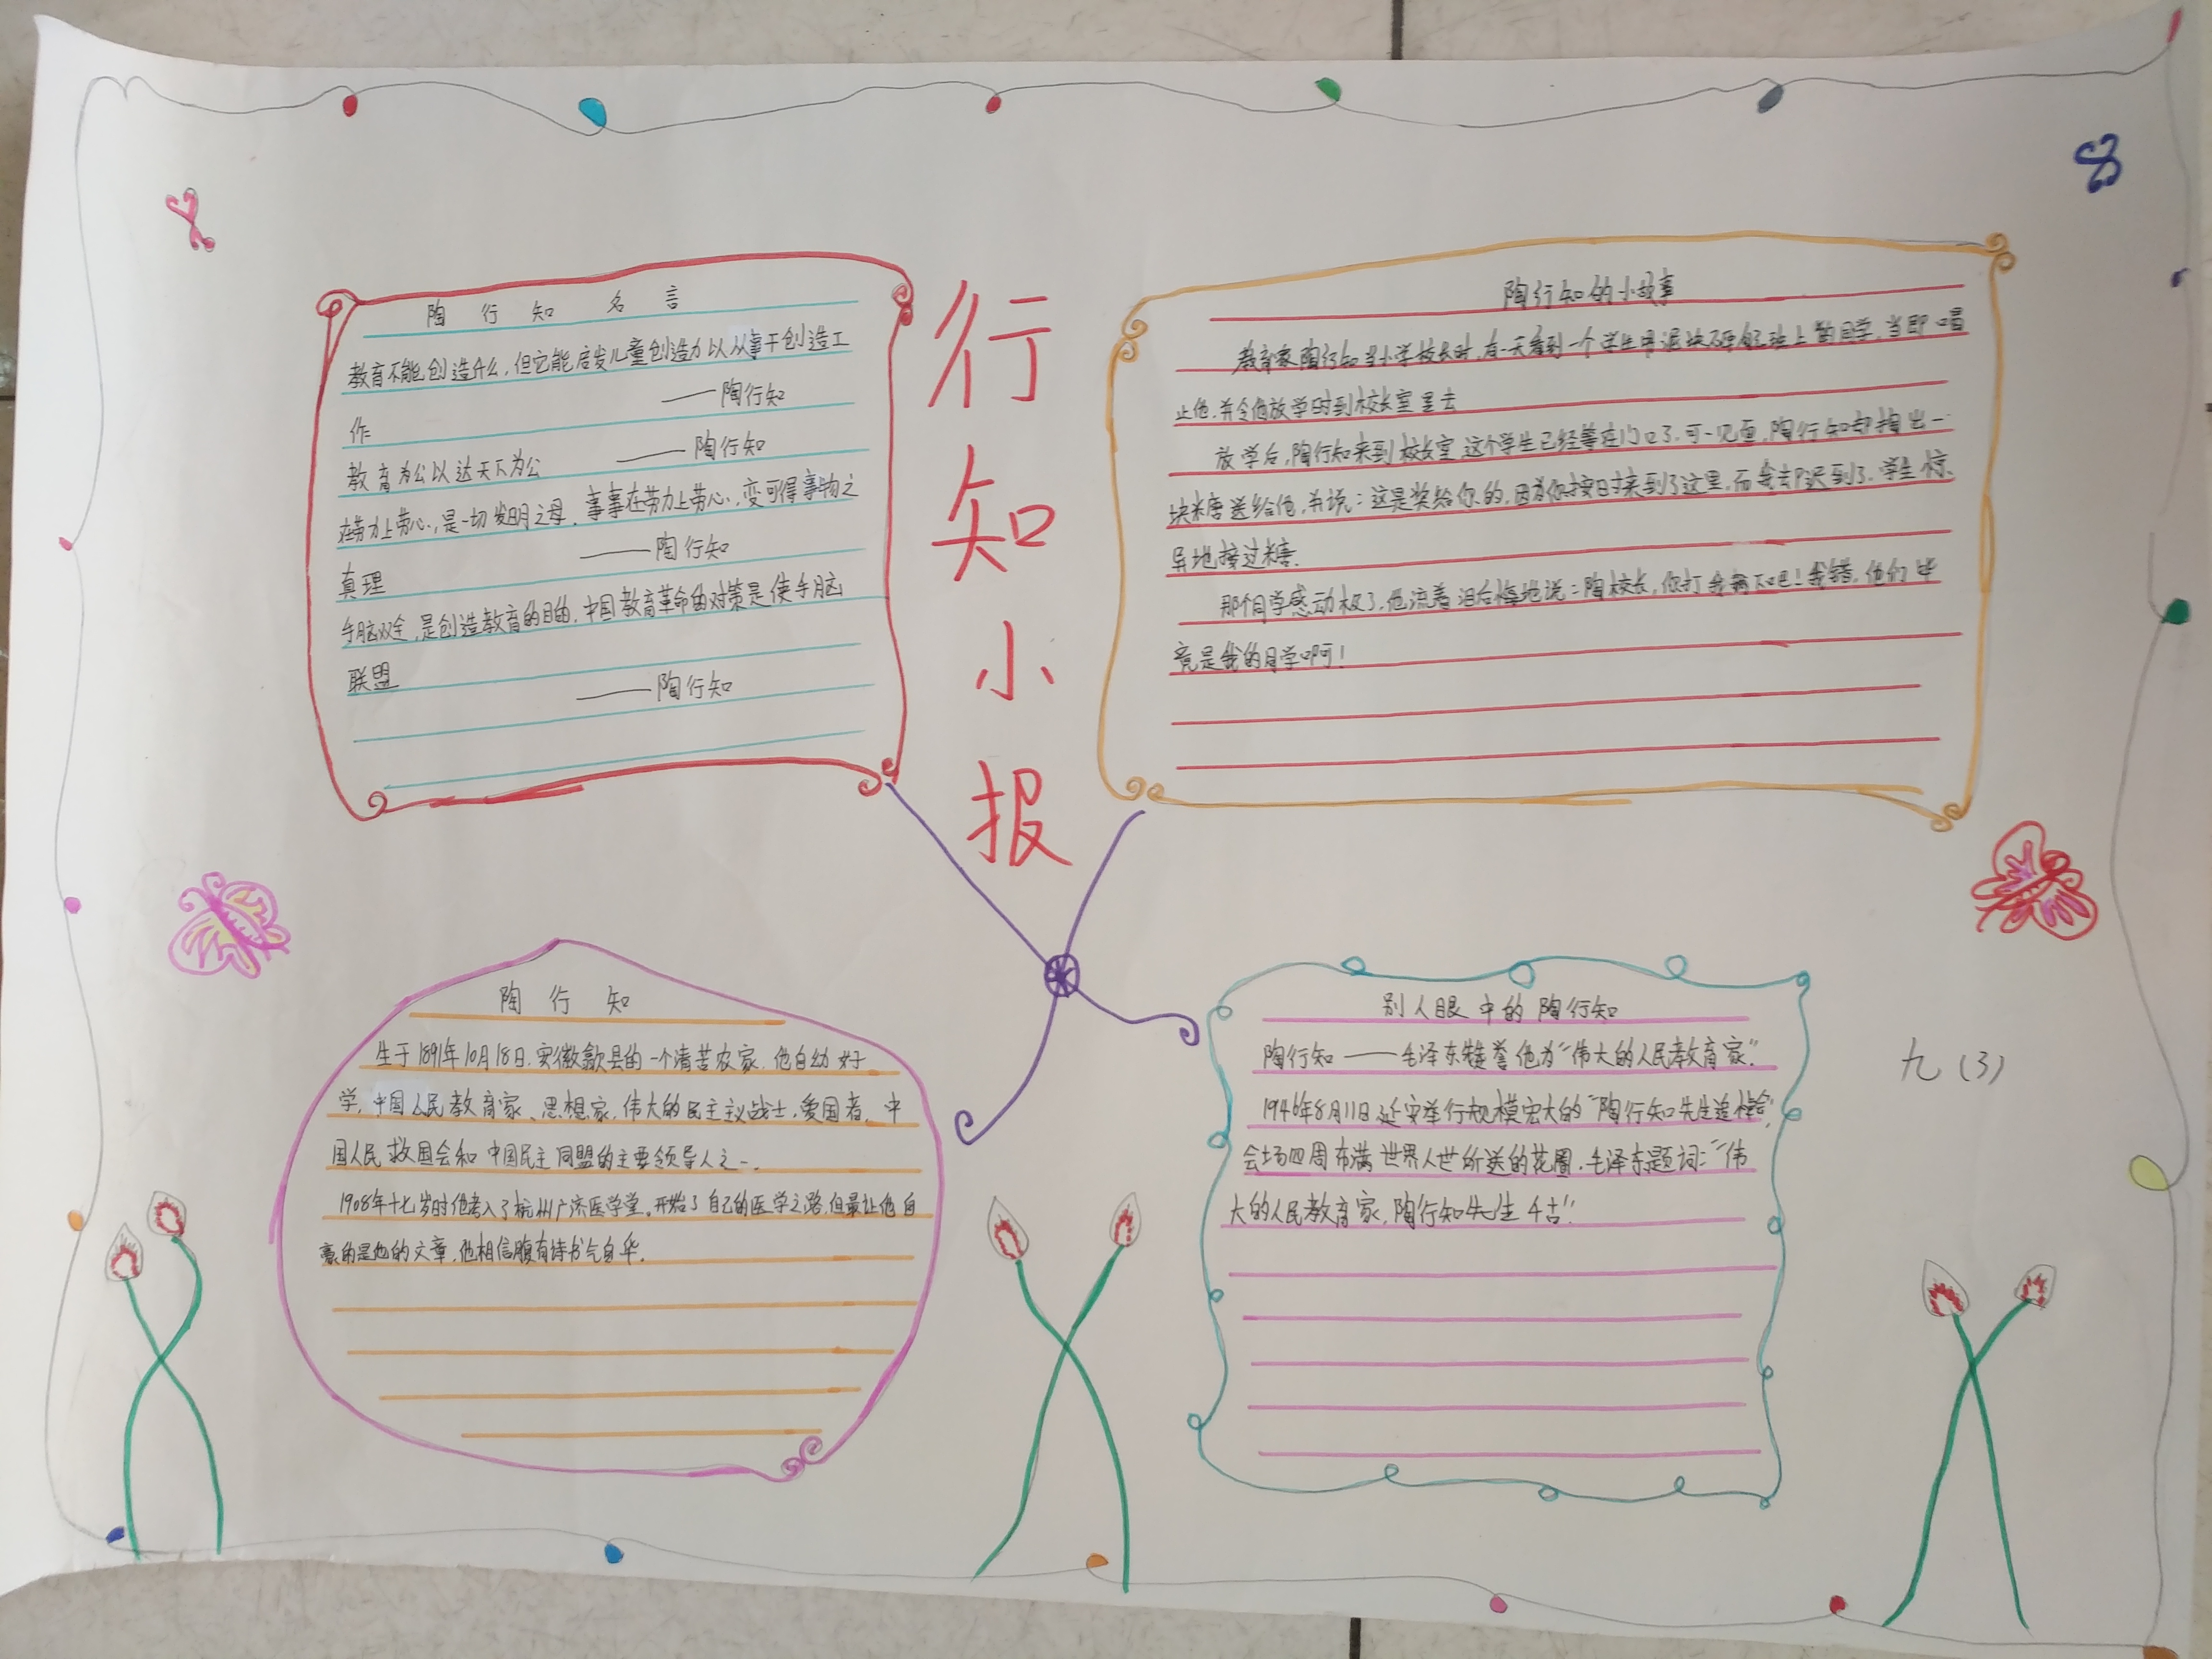 行知小报
陶行知名言
教育不能创造什么，但它能启发儿童创造力以从事干创造工
作 ——陶行知
教育为公以达天下为公 ——陶行知
在劳力上劳心，是一切发明之母，事事在劳力上劳心，变可得事物之
真理 ——陶行知
手脑双全，是创造教育的目的，中国教育革命的对策是使手脑
联盟 ——陶行知
陶行知的小故事
教育家陶行知当小学校长时，有一天看到一个学生用泥块砸自己班上的同学，当即喝
止他，并令他放学时到校长室里去
放学后，陶行知来到校长室，这个学生已经等在门口了，可一见面，陶行知却掏出一
块糖送给他，并说：这是奖给你的，因为你按时来到了这里，而我去却迟到了，学生惊
异地接过糖．
那个同学感动极了，他流着泪后悔地说：陶校长，你打我两下吧！我错，他们毕
竟是我的同学啊！
陶行知
生于1891年10月18日，安徽歙县的一个清苦农家，他自幼好
学，中国人民教育家、思想家，伟大的民主主义战士，爱国者，中
国人民救国会和中国民主同盟的主要领导人之一，
1908年十七岁时他考入了杭州广济医学堂。开始了自己的医学之路，但最让他自
豪的是他的文章，他相信腹有诗书气自华．
别人眼中的陶行知
陶行知——毛泽东赞誉他为“伟大的人民教育家”．
1946年8月11日延安举行规模宏大的“陶行知先生追悼会”，
会场四周布满世界人世所送的花圈，毛泽东题词：“伟
大的人民教育家，陶行知先生千古”．
九（3）